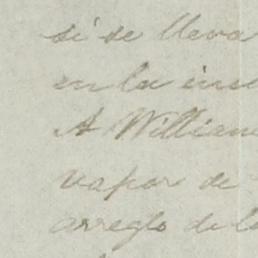 si se lleva
en la inse
A William
vapor de
arreglo de la